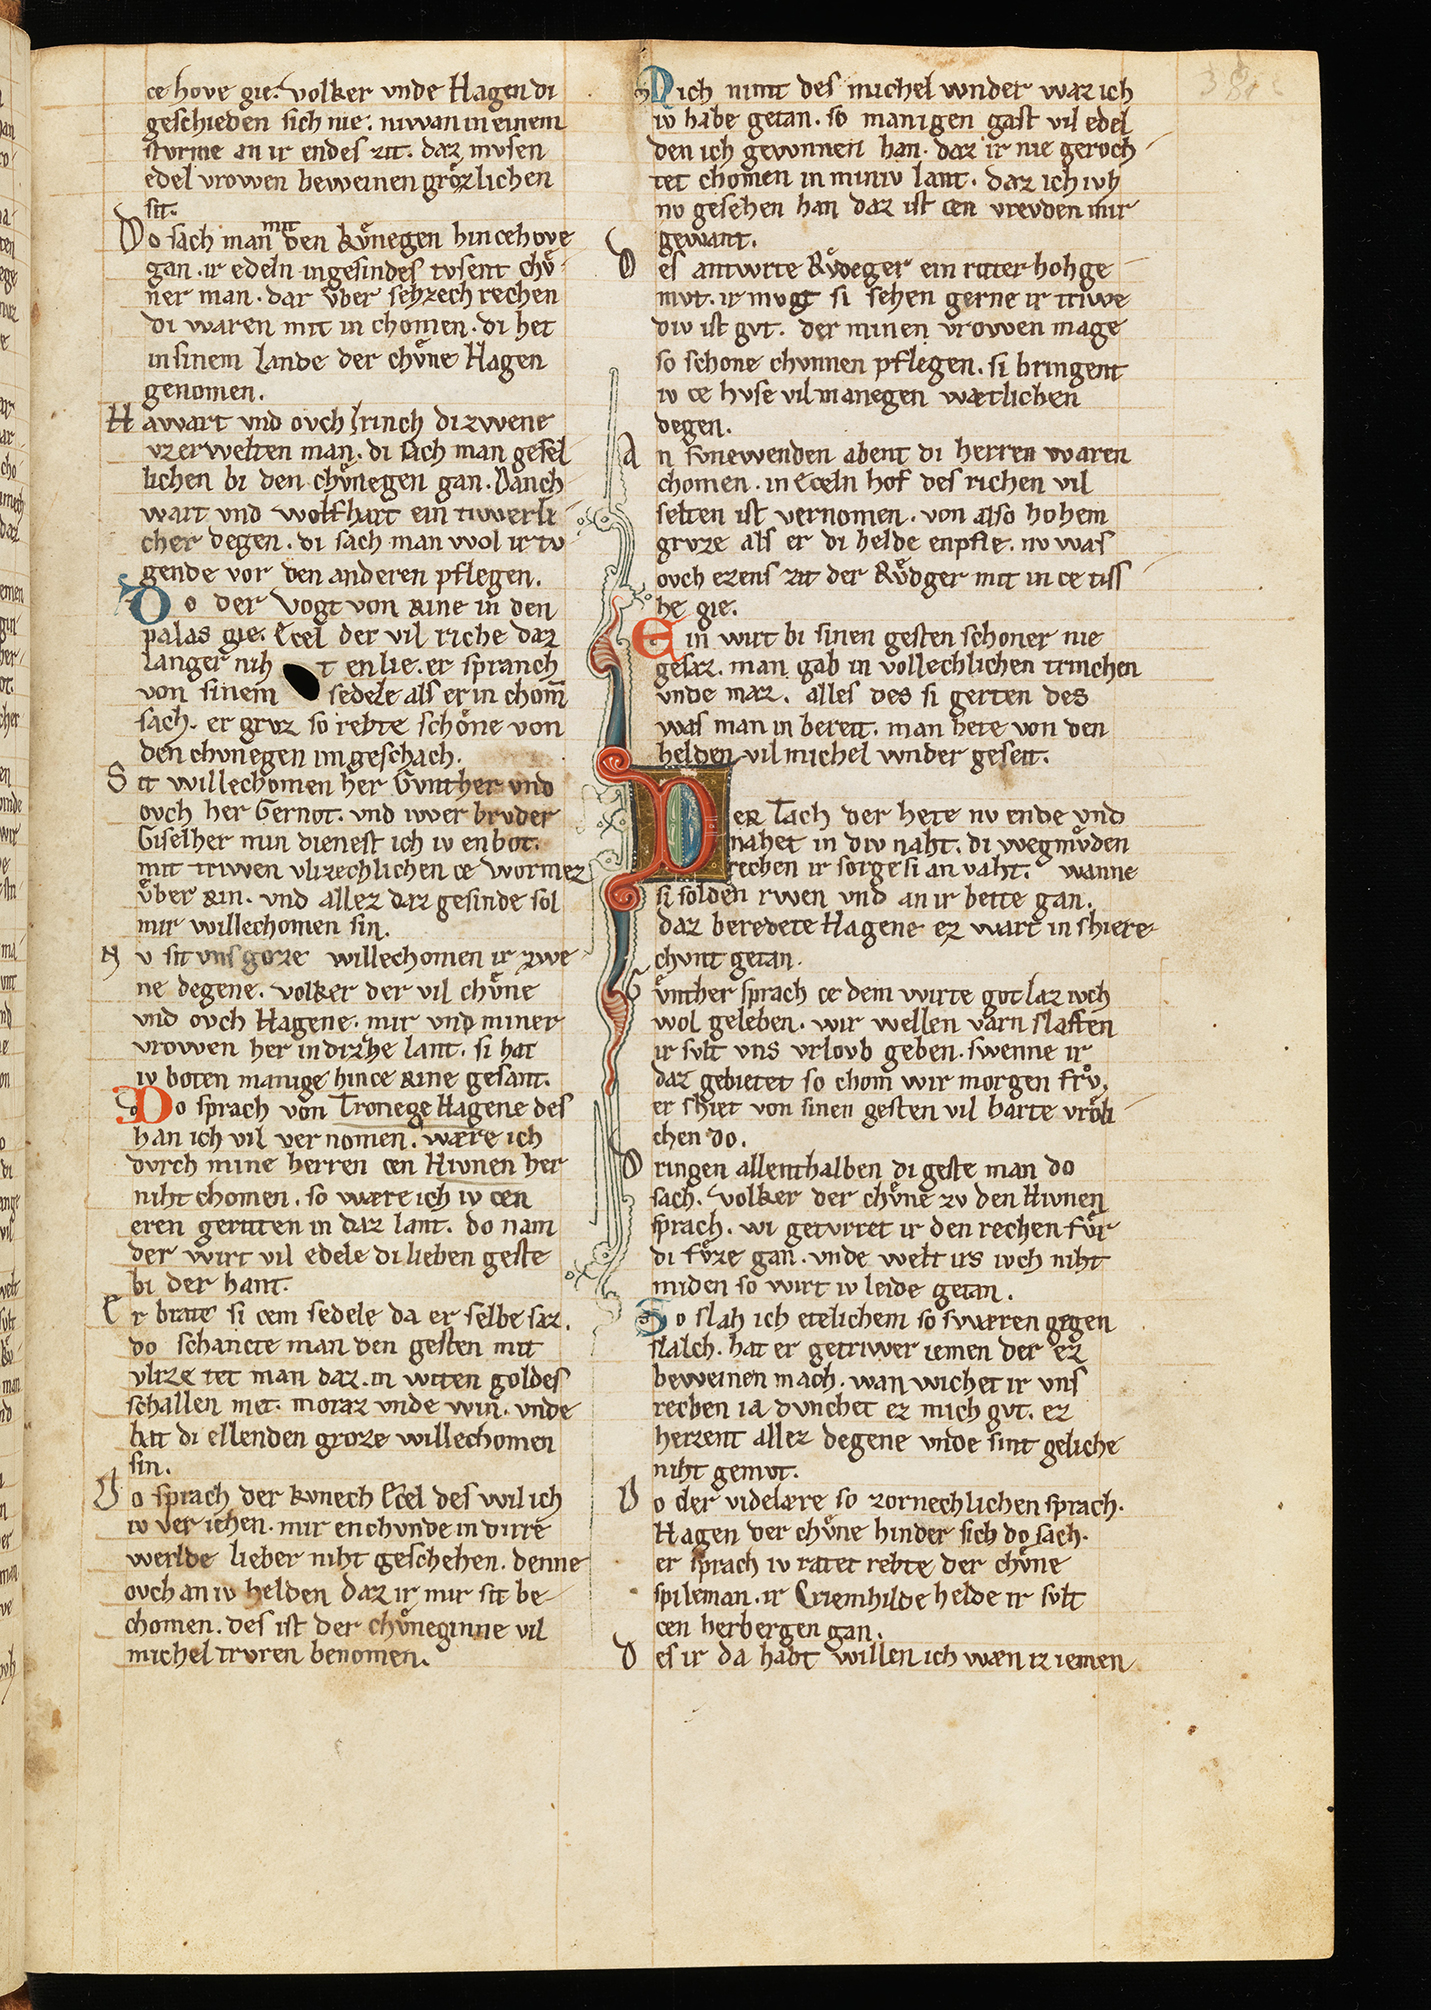 ce hove gie. volker vnde Hagen di
geschieden sich nie. niwan in einem
sturme an ir endes zit. daz mvsen
edel vrowen beweinen grôzlichen
sit.
Do sach man mit den kůnegen hin ce hove
gan. ir edeln ingesindes tvsent chů
ner man. dar vͤber sehzech rechen
di waren mit in chomen. di het
in sinem lande der chůne Hagen
genomen.
Hawart vnd ovch Irinch di zwene
vz erwelten man. di sach man gesel
lichen bi den chůnegen gan. Danch
wart vnd wolfhart ein tiwerli
cher degen. di sach man wol ir tv
gende vor den anderen pflegen.
Do der vogt von Rine in den
palas gie. Ecel der vil riche daz
langer nih t en lie. er spranch
von sinem sedele als er in chom̄
sach. er grvz so rehte schône von
den chvnegen im geschach.
Sit willechomen her Gvnther vnd
ovch her Gernot. vnd iwer brvder
Giselher min dienest ich iv enbot.
mit triwen vlizechlichen ce wormez
vͤber Rin. vnd allez daz gesinde sol
mir willechomen sin.
Nv sit vns groze willechomen ir zwe
ne degene. volker der vil chůne
vnd ovch Hagene. mir vnd miner
vrowen her in dizhe lant. si hat
iv boten manige hin ce Rine gesant.
Do sprach von Tronege Hagene des
han ich vil vernomen. wære ich
dvrch mine herren cen Hivnen her
niht chomen. so wære ich iv cen
eren geritten in daz lant. do nam
der wirt vil edele di lieben geste
bi der hant.
Er brate si cem sedele da er selbe saz.
do schancte man den gesten mit
vlize tet man daz. in witen goldes
schallen met. moraz vnde win. vnde
bat di ellenden groze willechomen
sin.
Do sprach der kvnech Ecel des wil ich
iv veriehen. mir enchvnde in dirre
werlde lieber niht geschehen. denne
ovch an iv helden daz ir mir sit be
chomen. des ist der chůneginne vil
michel trvren benomen.
Mich nimt des michel wnder waz ich
iv habe getan. so manigen gast vil edel
den ich gewnnen han. daz ir nie geroch
tet chomen in miniv lant. daz ich ivh
nv gesehen han daz ist cen vrevden mir
gewant.
Des antwrte Rvͦdeger ein ritter hohge
mvt. ir mvgt si sehen gerne ir triwe
div ist gvt. der minen vrowen mage
so schone chvnnen pflegen. si bringent
iv ce hvse vil manegen wætlichen
degen.
An svnewenden abent di herren waren
chomen. in Eceln hof des richen vil
selten ist vernomen. von also hohem
grvze als er di helde enpfie. nv was
ovch ezens zit der Rvͦdger mit in ce tiss
he gie.
Ein wirt bi sinen gesten schoner nie
gesaz. man gab in vollechlichen trinchen
vnde maz. alles des si gerten des
was man in bereit. man hete von den
helden vil michel wnder geseit.
Der Tach der hete nv ende vnd
nahet in div naht. di wegmůden
rechen ir sorge si an vaht. wanne
si solden rwen vnd an ir bette gan.
daz beredete Hagene ez wart in shiere
chvnt getan.
Gvͤnther sprach ce dem wirte got laz ivch
wol geleben. wir wellen varn slaffen
ir svlt vns vrlovb geben. swenne ir
daz gebietet so chom wir morgen frvͦ.
er shiet von sinen gesten vil harte vrôli
chen do.
Dringen allenthalben di geste man do
sach. volker der chůne zv den Hivnen
sprach. wi getvrret ir den rechen fvͤr
di fvͤze gan. vnde welt irs ivch niht
miden so wirt iv leide getan.
So slah ich etelichem so swæren gegen
slalch. hat er getriwer iemen der ez
beweinen mach. wan wichet ir vns
rechen ia dvnchet ez mich gvt. ez
heizent allez degene vnde sint geliche
niht gemvt.
Do der videlære so zornechlichen sprach.
Hagen der chůne hinder sich do sach.
er sprach iv ratet rehte der chůne
spileman. ir Criemhilde helde ir svlt
cen herbergen gan.
Des ir da habt willen ich wæn iz iemen